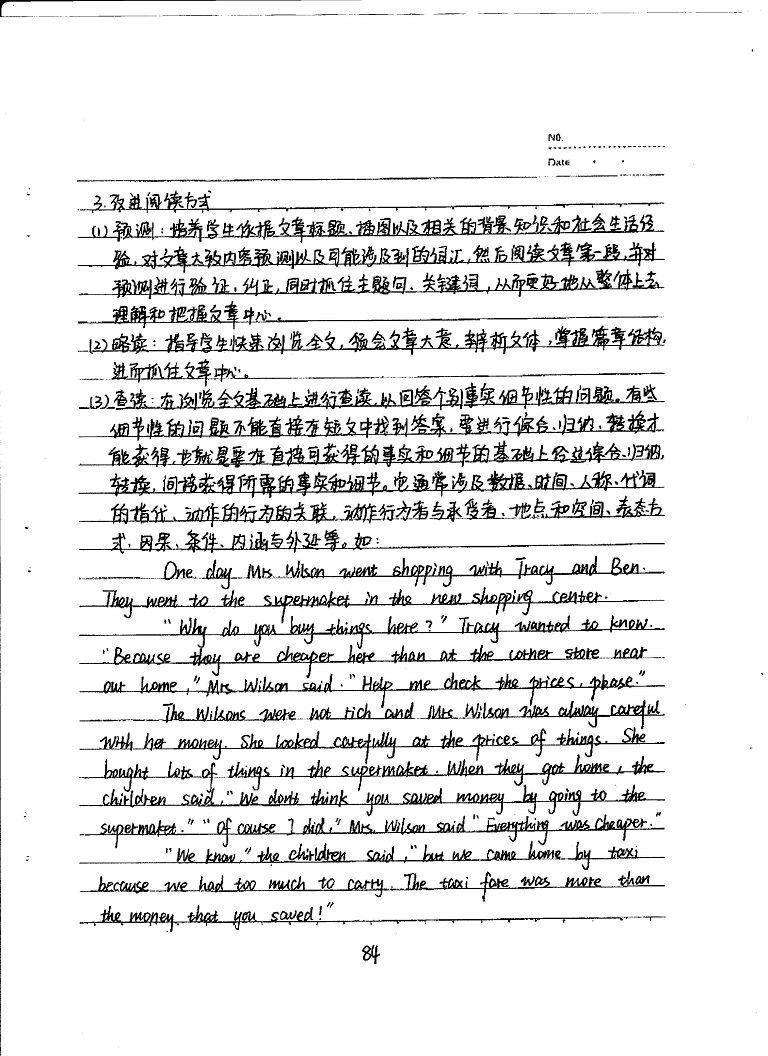 No.
Date
3.改进阅读方式
(1)预测：培养学生依据文章标题、插图以及相关的背景知识和社会生活经
验，对文章大致内容预测以及可能涉及到的词汇，然后阅读文章第一段，并对
预测进行验证，纠正，同时抓住主题句、关键词，从而更好地从整体上去
理解和把握文章中心。
(2)略读：指导学生快速浏览全文，领会文章大意，辨析文体，掌握篇章结构，
进而抓住文章中心。
(3)查读：在浏览全文基础上进行查读，以回答个别事实细节性的问题。有些
细节性的问题不能直接在短文中找到答案，要进行综合、归纳，转换才
能获得，也就是要在直接可获得的事实和细节的基础上经过综合、归纳，
转换，间接获得所需的事实和细节。它通常涉及数据、时间、人称、代词
的指代、动作的行为的关联，动作行为者与承受者、地点和空间、表态方
式、因果、条件、内涵与外延等。如：
One day Mrs Wilson went shopping with Tracy and Ben.
They went to the supermaket in the new shopping center.
"Why do you buy things here?" Tracy wanted to know.
"Because they are cheaper here than at the corner store near
our home," Mrs Wilson said. "Help me check the prices, please."
The Wilsons were not rich and Mrs Wilson was alway careful
with her money. She looked carefully at the prices of things. She
bought lots of things in the supermaket. When they got home, the
chirldren said, "We don't think you saved money by going to the
supermaket." "Of course I did," Mrs. Wilson said "Everything was cheaper."
"We know," the chirldren said, "but we came home by taxi
because we had too much to carry. The taxi fare was more than
the money that you saved!"
84